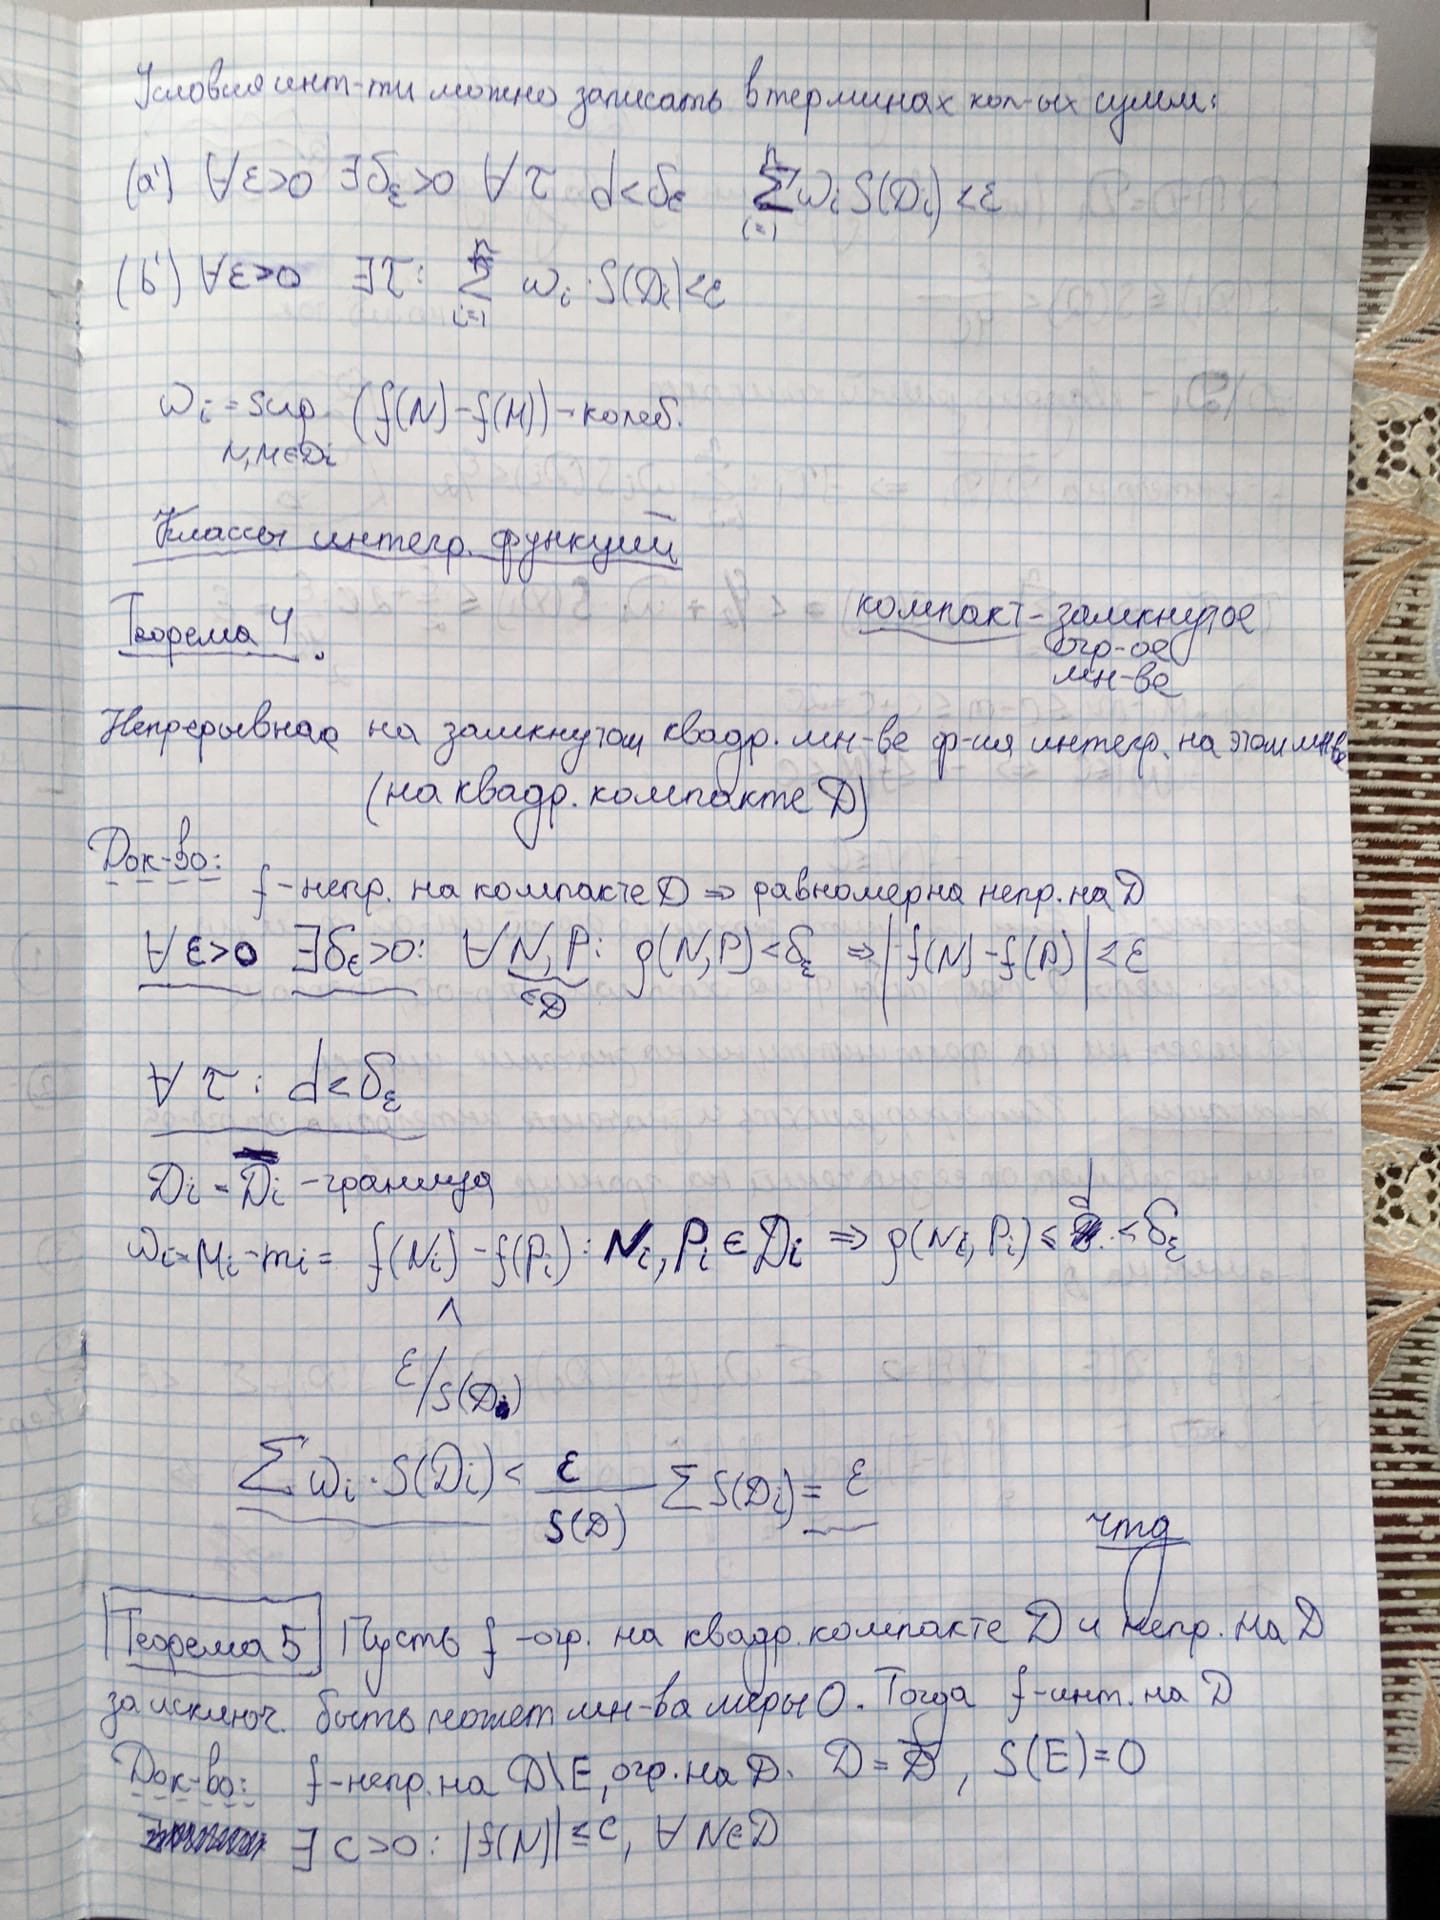 Условия инт-ти можно записать в терминах кол-ых сумм:
(a') ∀ε>0 ∃δ_ε>0 ∀τ d<δ_ε ∑_{i=1}^{n} ω_i S(D_i)<ε
(b') ∀ε>0 ∃τ: ∑_{i=1}^{n} ω_i·S(D_i)<ε
ω_i = sup_{N,M∈D_i} (f(N)-f(M)) - колеб.
Классы интегр. функций
Теорема 4.
компакт - замкнутое
огр-ое
мн-ве
Непрерывная на замкнутом квадр. мн-ве ф-ия интегр. на этом мн-ве
(на квадр. компакте D)
Док-во:
f - непр. на компакте D ⇒ равномерна непр. на D
∀ε>0 ∃δ_ε>0: ∀N,P: ρ(N,P)<δ_ε ⇒ |f(N)-f(P)|<ε
∈D
∀τ: d<δ_ε
D_i = D̅_i - граница
ω_i=M_i-m_i= f(N_i)-f(P_i): N_i,P_i∈D_i ⇒ ρ(N_i,P_i)≤ d <δ_ε
∧
ε/S(D)
∑ω_i·S(D_i)< ε/S(D) ∑S(D_i)=ε
чтд
Теорема 5 Пусть f - огр. на квадр. компакте D и непр. на D
за исключ. быть может мн-ва меры 0. Тогда f-инт. на D
Док-во: f-непр. на D\E, огр. на D. D=D̅, S(E)=0
∃ C>0: |f(N)|≤C, ∀N∈D